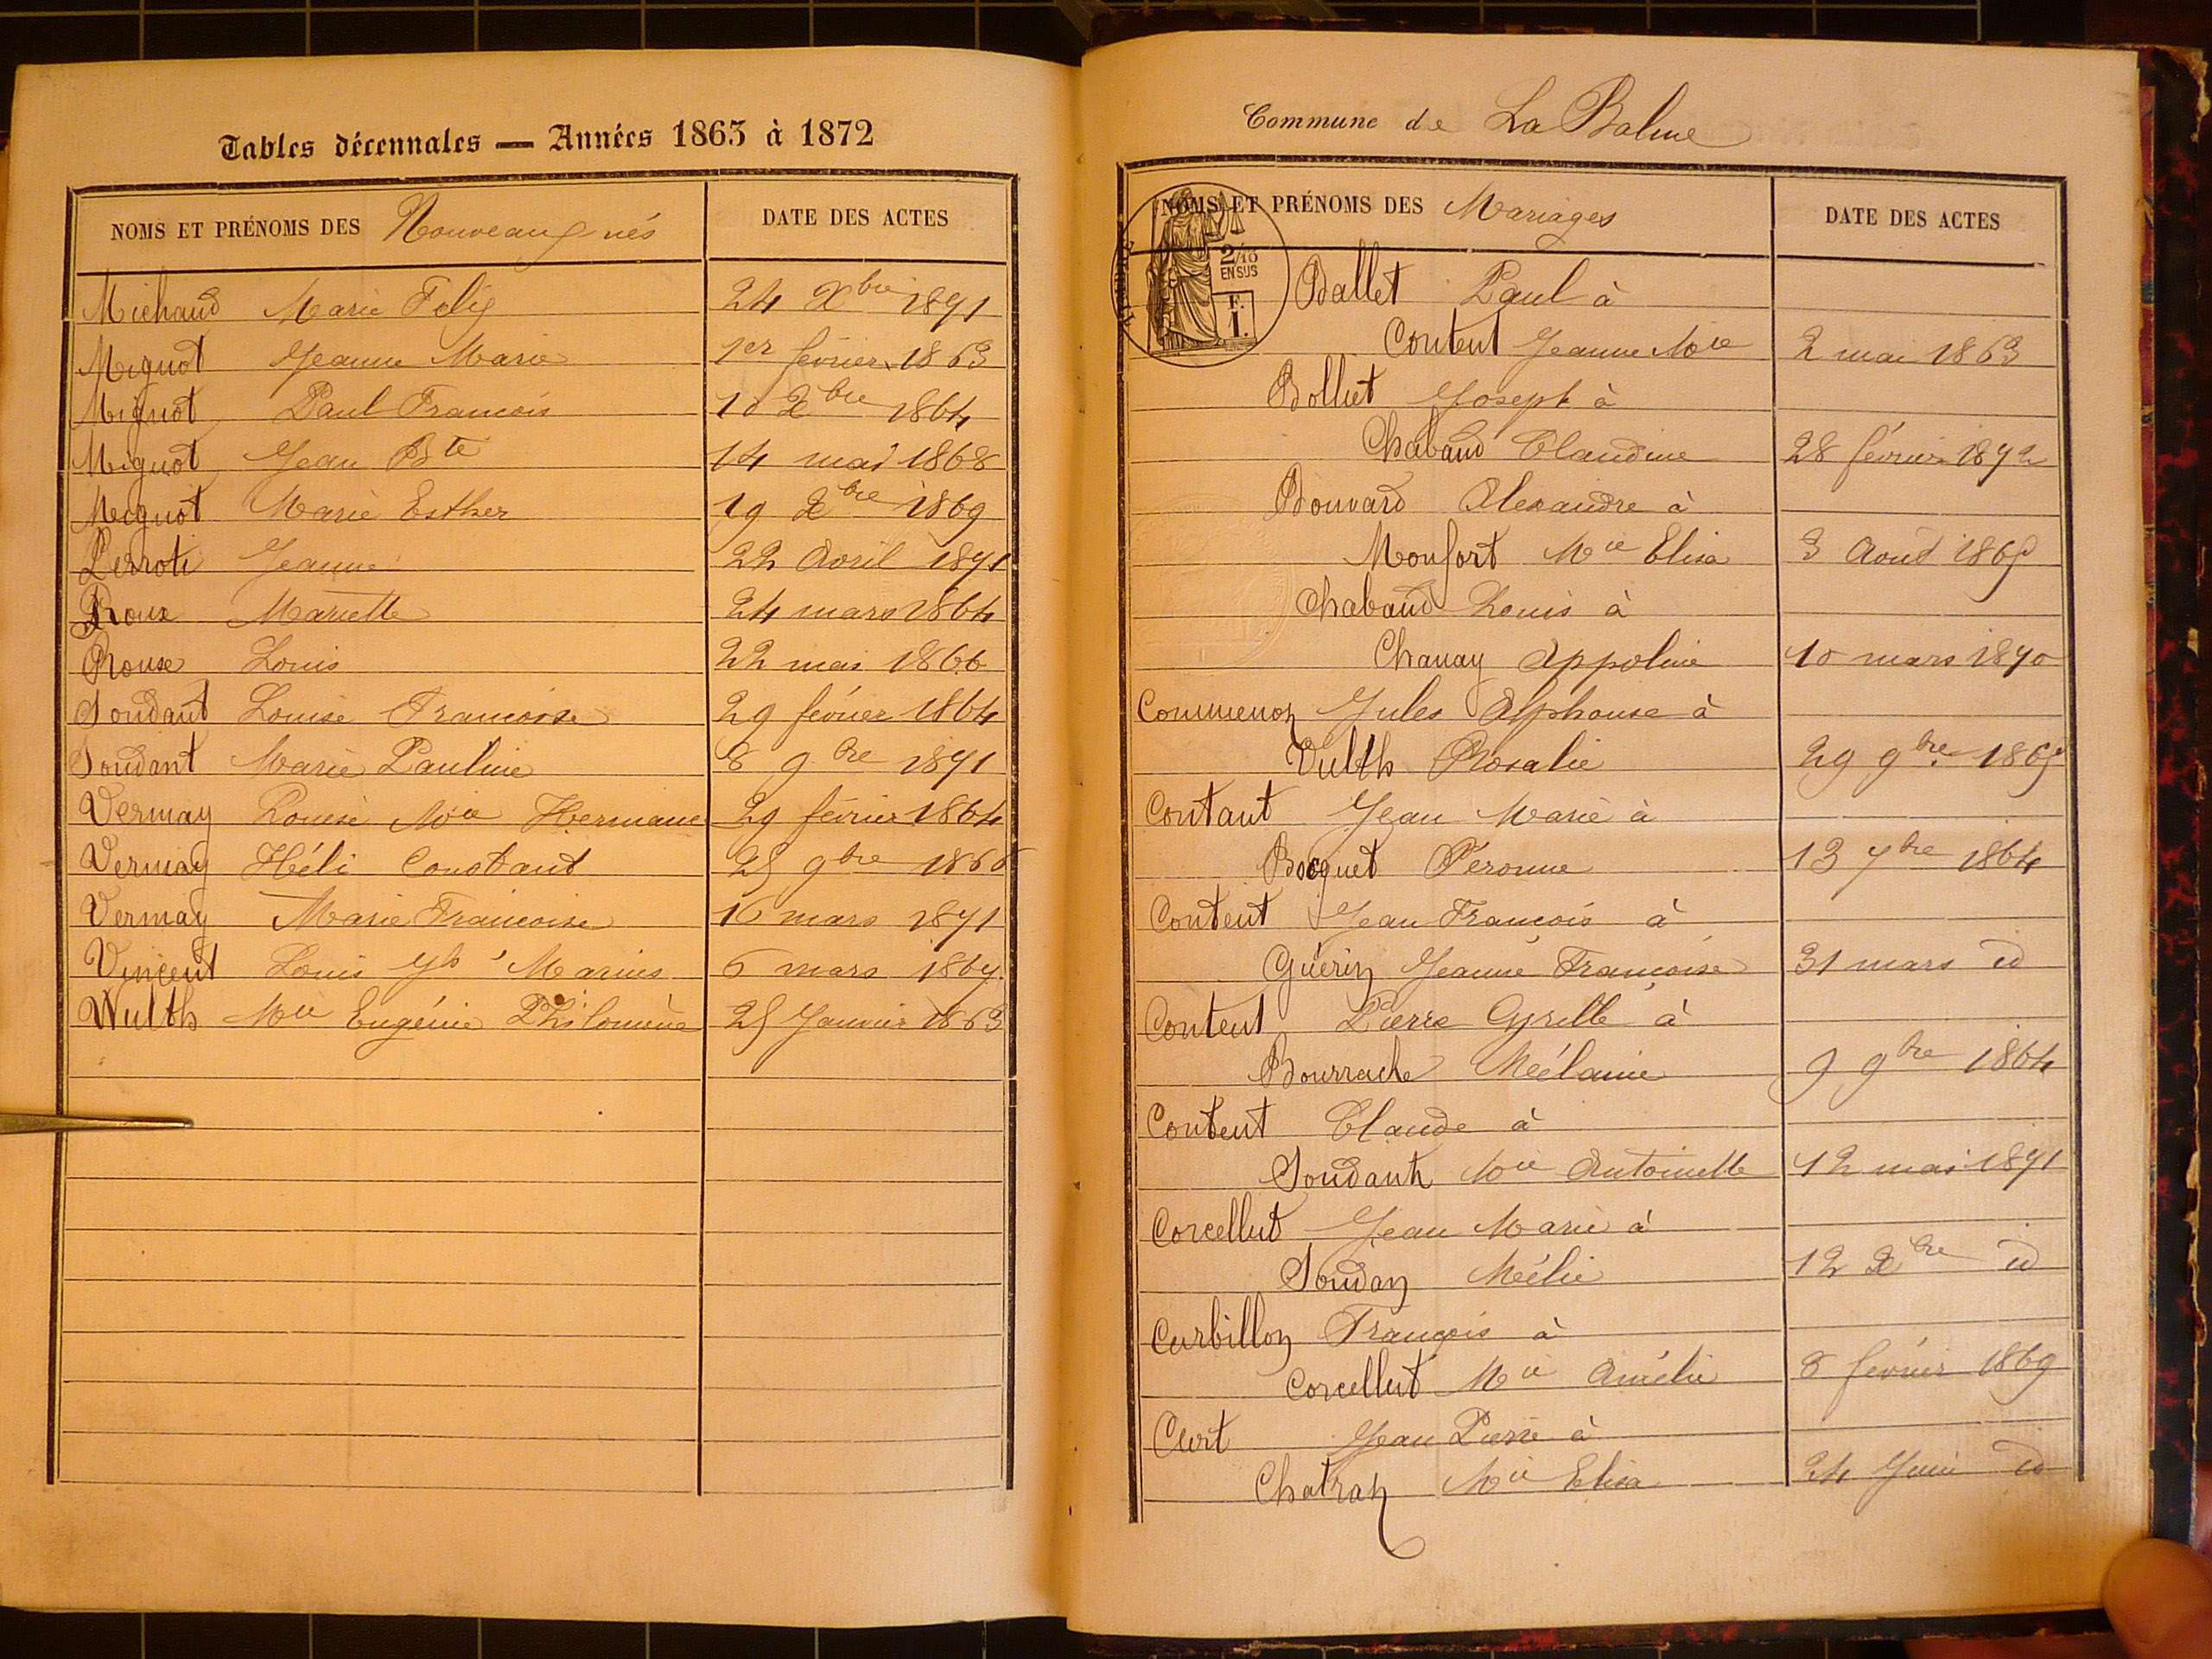 Tables décennales — Années 1863 à 1872
NOMS ET PRÉNOMS DES Nouveaux nés DATE DES ACTES
Michaud Marie Felix 24 Xbre 1871
Miguot Jeanne Marie 1er février 1863
Miguot Paul Francois 10 Xbre 1864
Miguot Jean Bte 14 mai 1868
Miguot Marie Esther 19 Xbre 1869
Perroti Jeanne 22 Avril 1871
Roux Mariette 24 mars 1864
Rouse Louis 22 mai 1866
Soudant Louise Francoise 29 février 1864
Soudant Marie Pauline 8 9bre 1871
Vermay Louise Mie Hermanie 29 février 1864
Vermay Héli Constant 25 9bre 1866
Vermay Marie Francoise 16 mars 1871
Vincent Louis Jh Marius 6 mars 1867
Wulth Mie Eugénie Philomène 25 Janvier 1863
Commune de La Balme
NOMS ET PRÉNOMS DES Mariages DATE DES ACTES
2/10
EN SUS
F.
1.
Ballet Paul à
Content Jeanne Mie 2 mai 1863
Bolliet Joseph à
Chabaud Claudine 28 février 1872
Bouvard Alexandre à
Monfort Mie Elisa 3 Aout 1865
Chabaud Louis à
Chanay Appoline 10 mars 1870
Commenoz Jules Alphonse à
Vulth Rosalie 29 9bre 1865
Contant Jean Marie à
Bocquet Péronne 13 7bre 1864
Content Jean Francois à
Guérin Jeanne Francoise 31 mars id
Content Pierre Cyrille à
Bourrache Mélanie 9 9bre 1864
Content Claude à
Soudant Mie Antoinette 12 mai 1871
Corcellut Jean Marie à
Soudan Mélie 12 Xbre id
Curbillon François à
Corcellut Mie Amélie 8 février 1869
Curt Jean Pierre à
Chatran Mie Elisa 24 Juin id